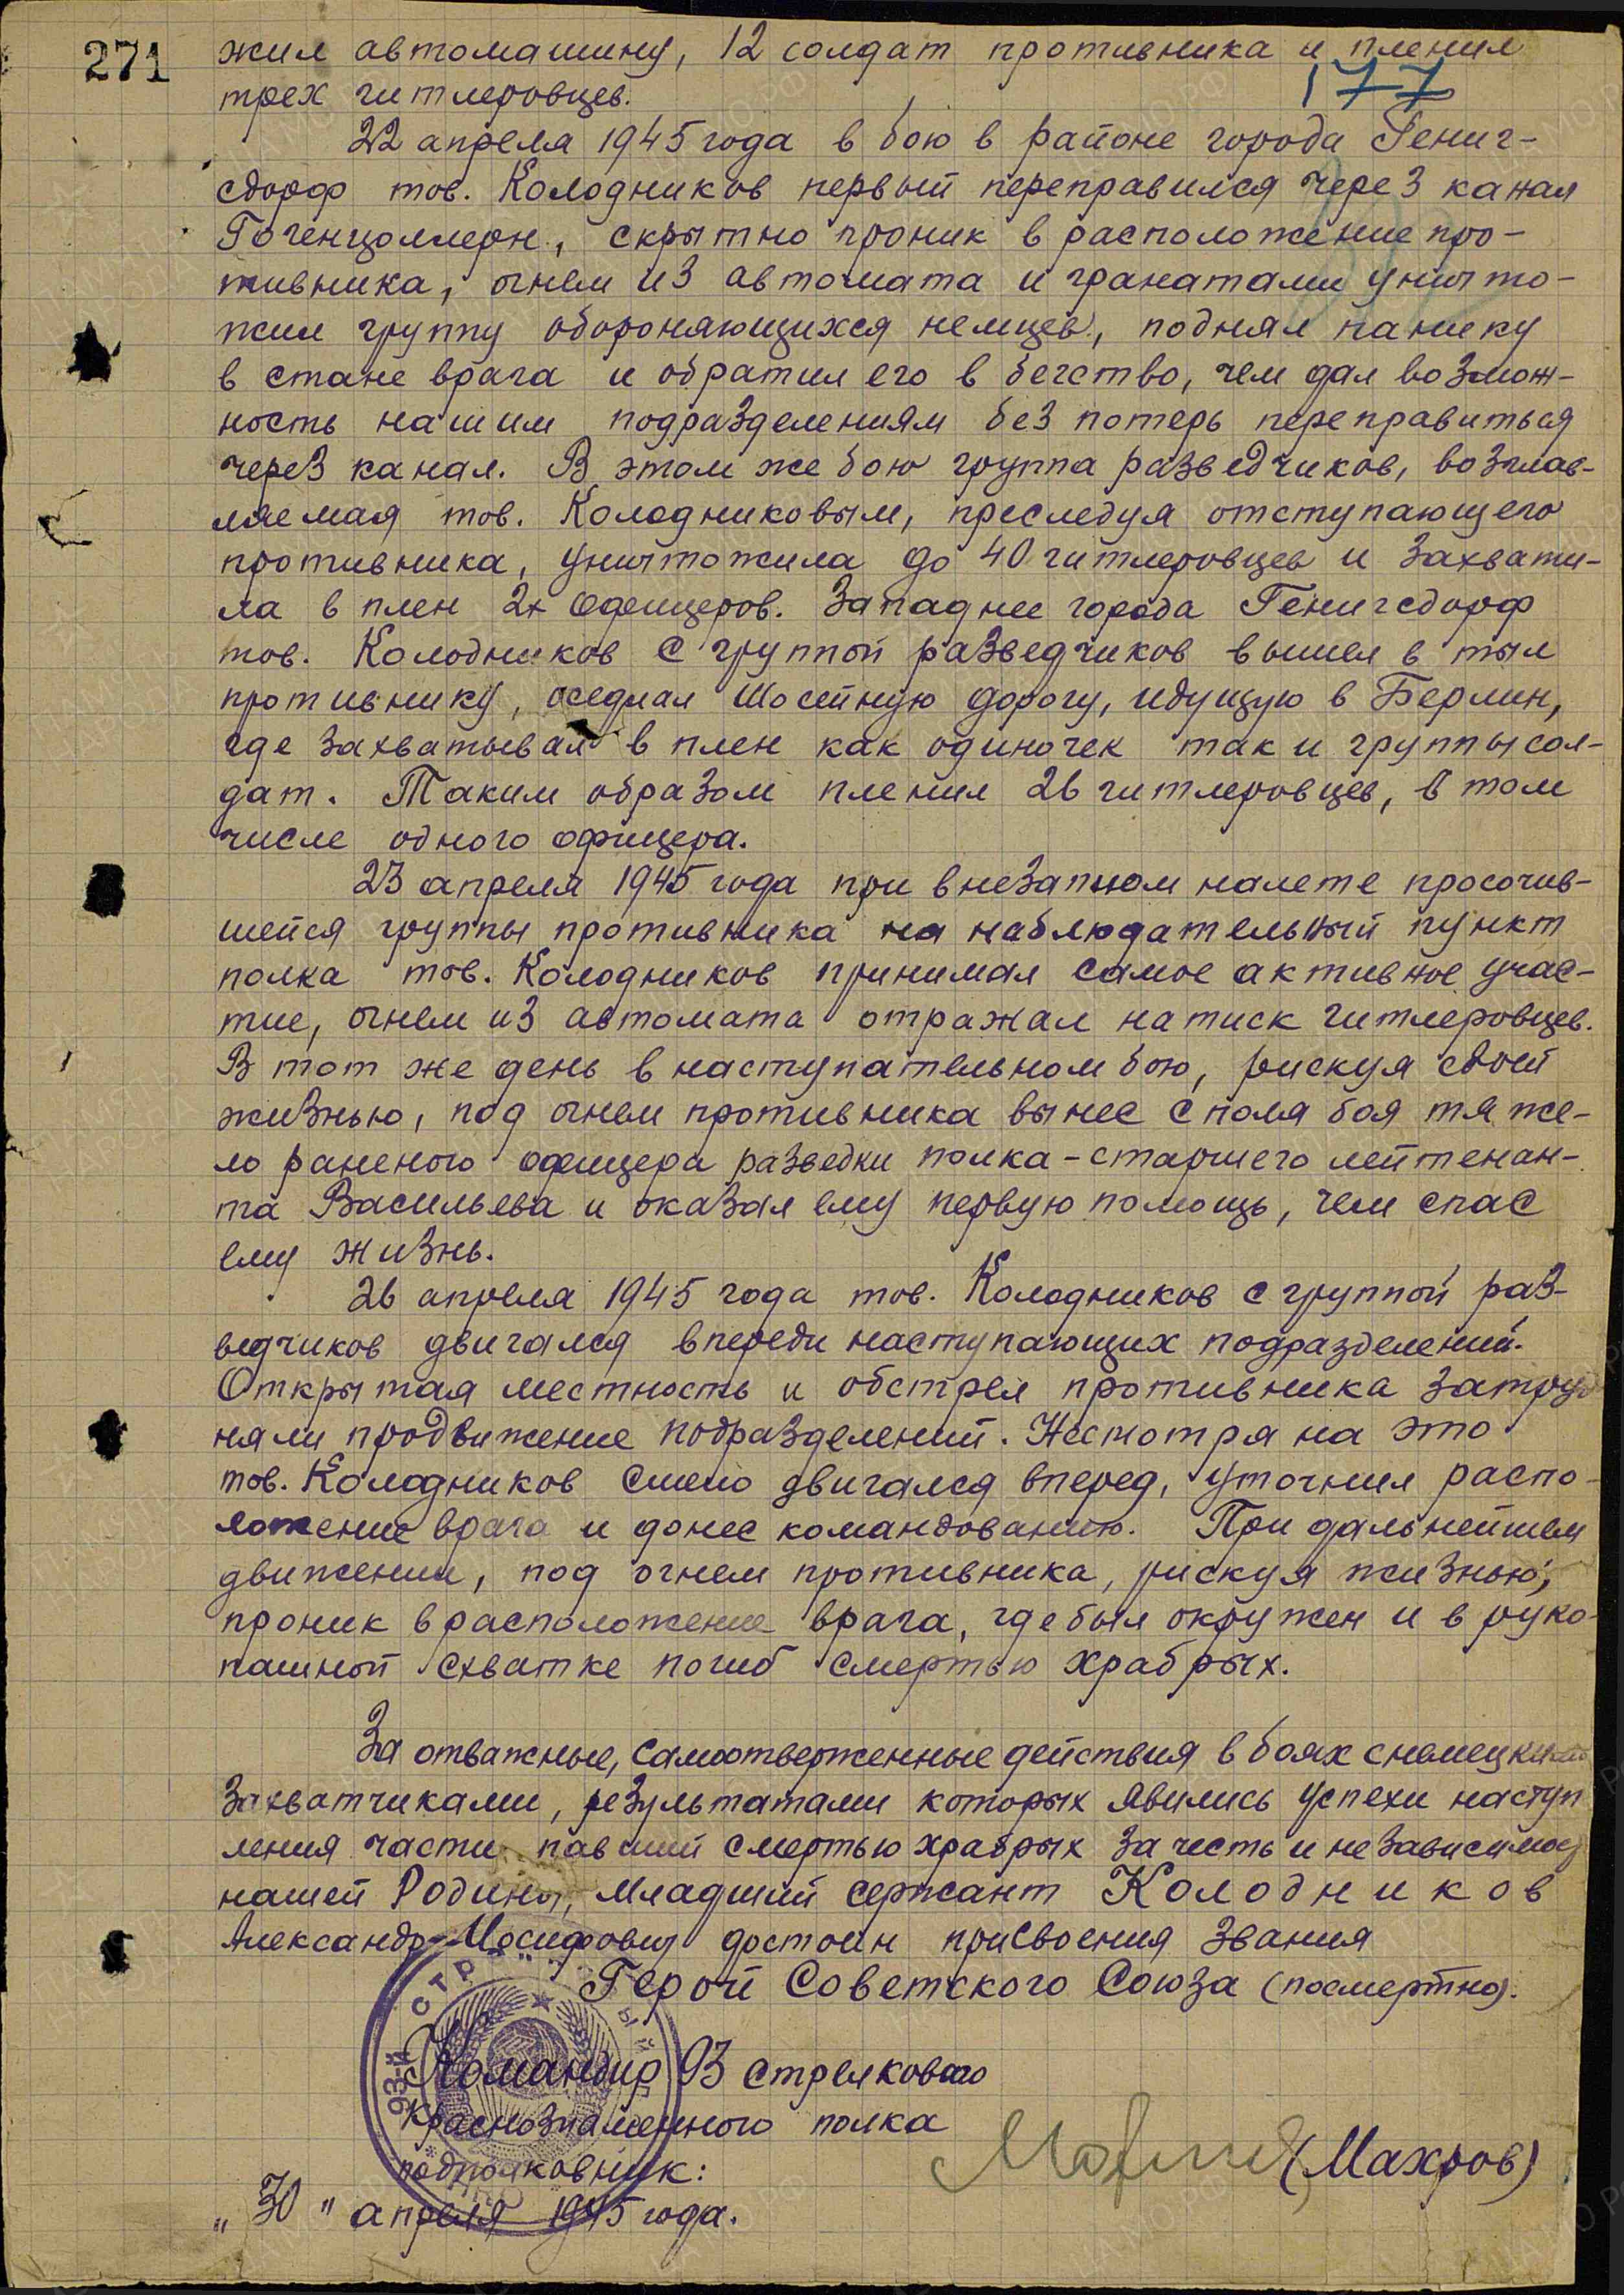 271
жил автомашину, 12 солдат противника и пленил
177
трех гитлеровцев.
22 апреля 1945 года в бою в районе города Гениг-
сдорф тов. Колодников первый переправился через канал
Гогенцоллерн, скрытно проник в расположение про-
тивника, огнем из автомата и гранатами уничто-
жил группу обороняющихся немцев, поднял панику
в стане врага и обратил его в бегство, чем дал возмож-
ность нашим подразделениям без потерь переправиться
через канал. В этом же бою группа разведчиков, возглав-
ляемая тов. Колодниковым, преследуя отступающего
противника, уничтожила до 40 гитлеровцев и захвати-
ла в плен 2х офицеров. Западнее города Генигсдорф
тов. Колодников с группой разведчиков вышел в тыл
противнику, оседлал шосейную дорогу, идущую в Берлин,
где захватывал в плен как одиночек так и группы сол-
дат. Таким образом пленил 26 гитлеровцев, в том
числе одного офицера.
23 апреля 1945 года при внезапном налете просочив-
шейся группы противника на наблюдательный пункт
полка тов. Колодников принимал самое активное учас-
тие, огнем из автомата отражал натиск гитлеровцев.
В тот же день в наступательном бою, рискуя своей
жизнью, под огнем противника вынес с поля боя тяже-
ло раненого офицера разведки полка - старшего лейтенан-
та Васильева и оказал ему первую помощь, чем спас
ему жизнь.
26 апреля 1945 года тов. Колодников с группой раз-
ведчиков двигался впереди наступающих подразделений.
Открытая местность и обстрел противника затруд
няли продвижение подразделений. Несмотря на это
тов. Колодников смело двигался вперед, уточнил распо-
ложение врага и донес командованию. При дальнейшем
движении, под огнем противника, рискуя жизнью,
проник в расположение врага, где был окружен и в руко-
пашной схватке погиб смертью храбрых.
За отважные, самоотверженные действия в боях с немецкими
захватчиками, результатами которых явились успехи наступ
ления части, павший смертью храбрых за честь и независимость
нашей Родины, младший сержант Колодников
Александр Иосифович достоин присвоения звания
Герой Советского Союза (посмертно).
Командир 93 стрелкового
Краснознаменного полка
подполковник:
(Махров)
„30" апреля 1945 года.
93-й